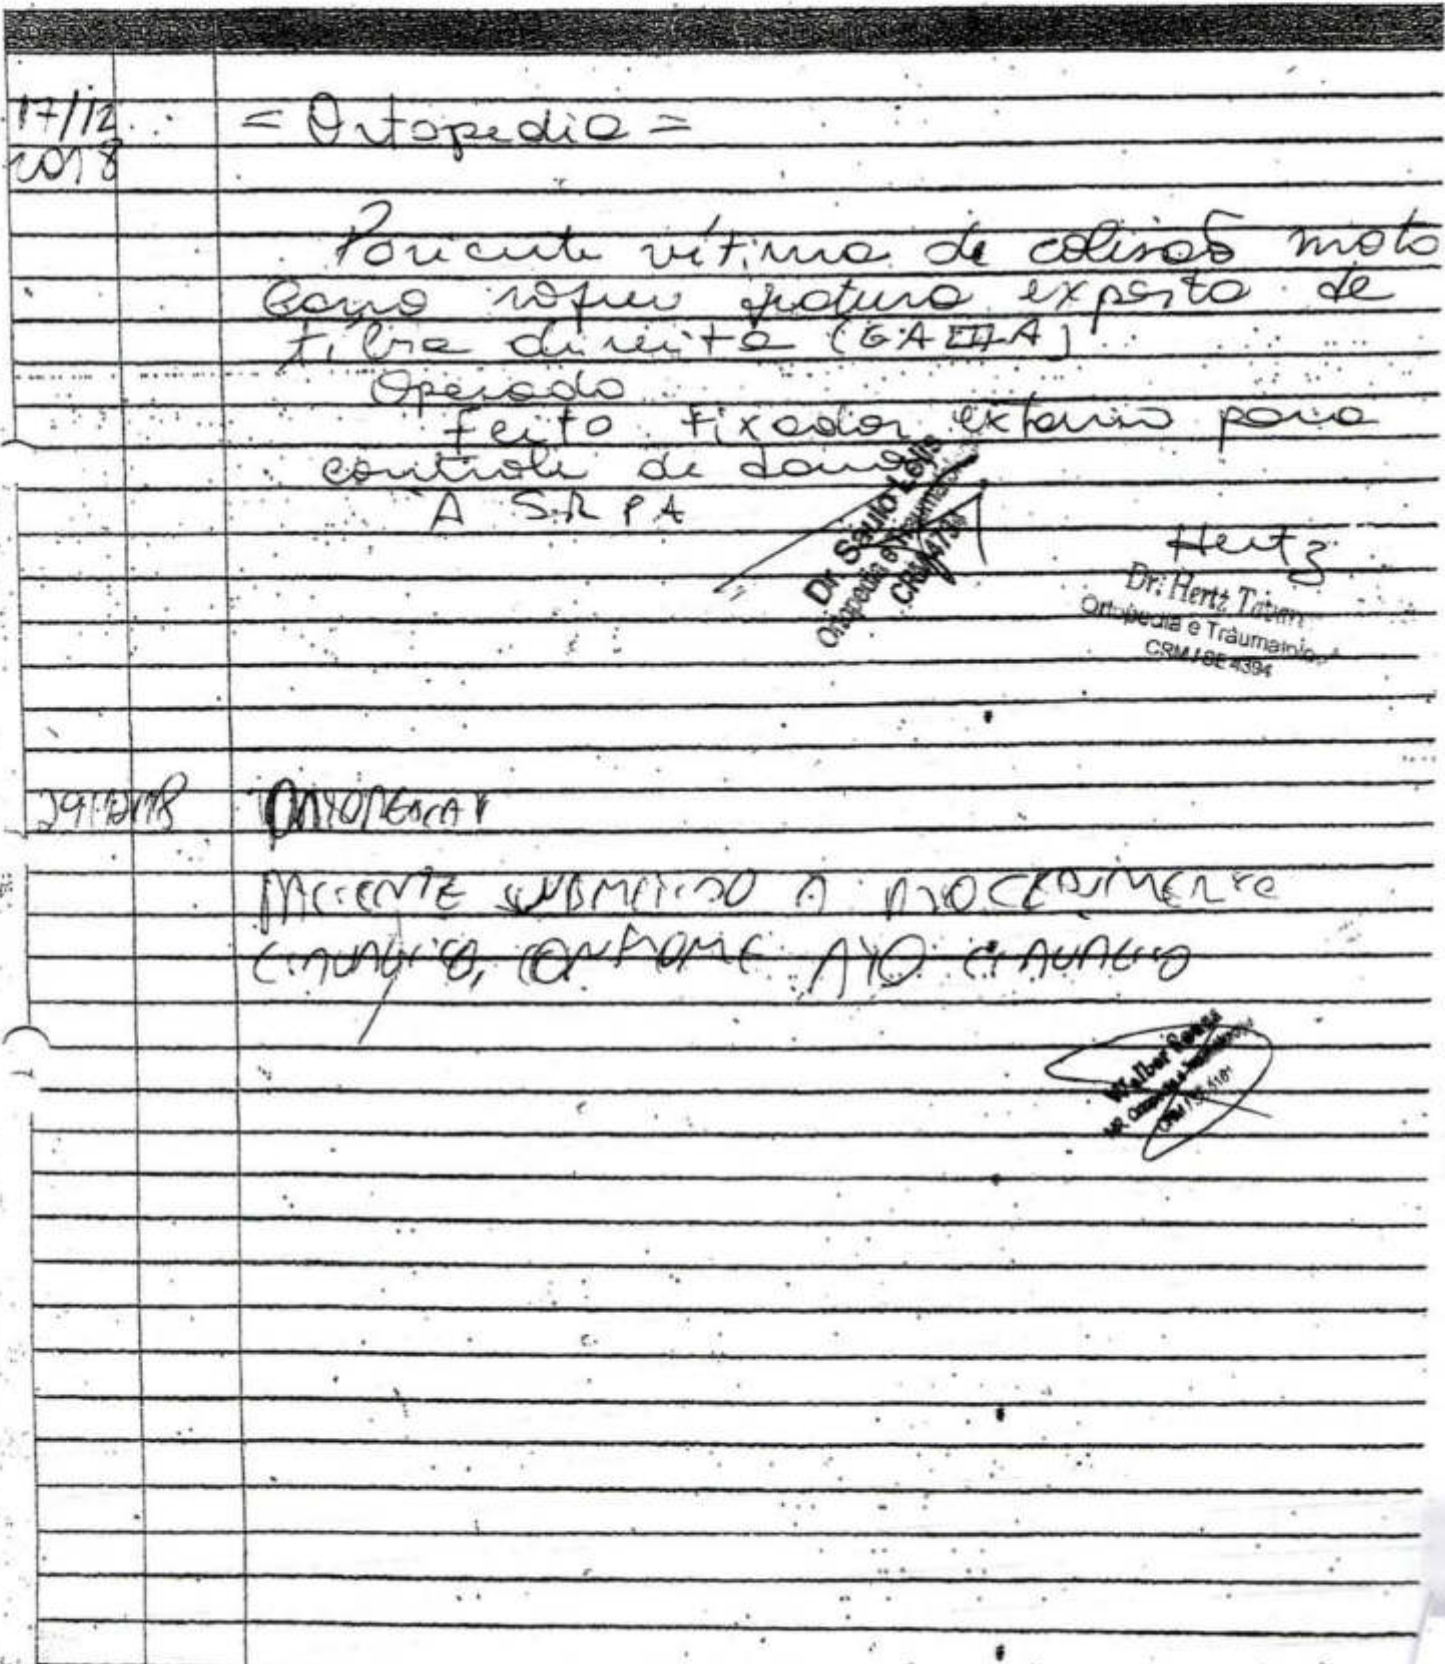 17/12
2018
= Ortopedia =
Paciente vítima de colisão moto
carro sofreu fratura exposta de
tíbia direita (GAIIIA)
Operado
Feito Fixador externo para
controle de dano
A SRPA
Dr. Saulo
Ortopedia e
CRM
Hertz
Dr. Hertz
Ortopedia e Traumatologia
CRM / SE 4394
29/12/18
ORTOPEDIA
PACIENTE SUBMETIDO A PROCEDIMENTO
CIRURGICO, CONFORME ATO CIRURGICO
Walber
MR Ortopedia e Traumatologia
CRM / SE 5181